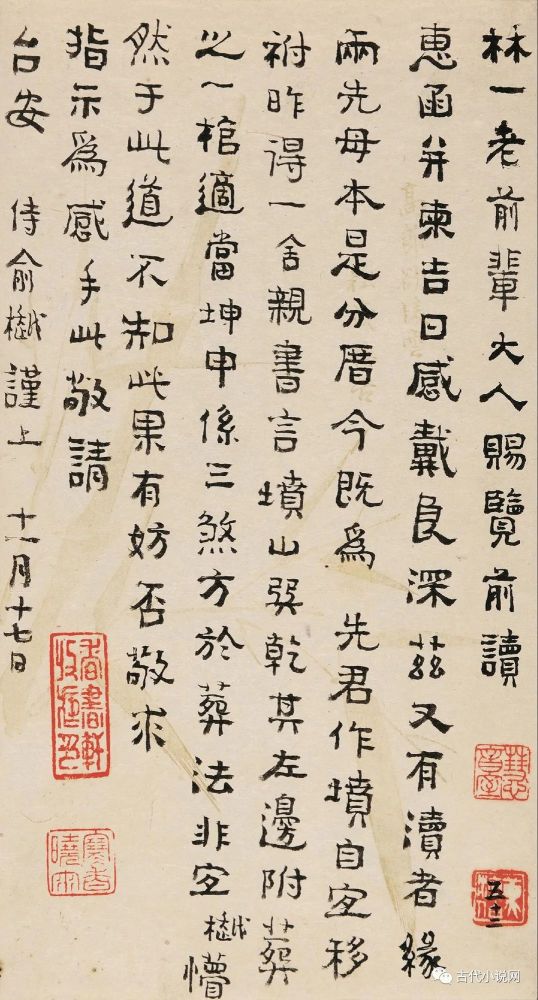 林一老前輩大人賜覽前讀
惠函并柬吉日感戴良深茲又有瀆者緣
兩先母本是分厝今既爲 先君作墳自宜移
祔昨得一舍親書言墳山巽乾其左邊附葬
之一棺適當坤申係三煞方於葬法非宜樾懵
然于此道不知此果有妨否敬求
指示爲感手此敬請
台安 侍俞樾謹上 十一月十七日
五十二
香書軒
古代小说网